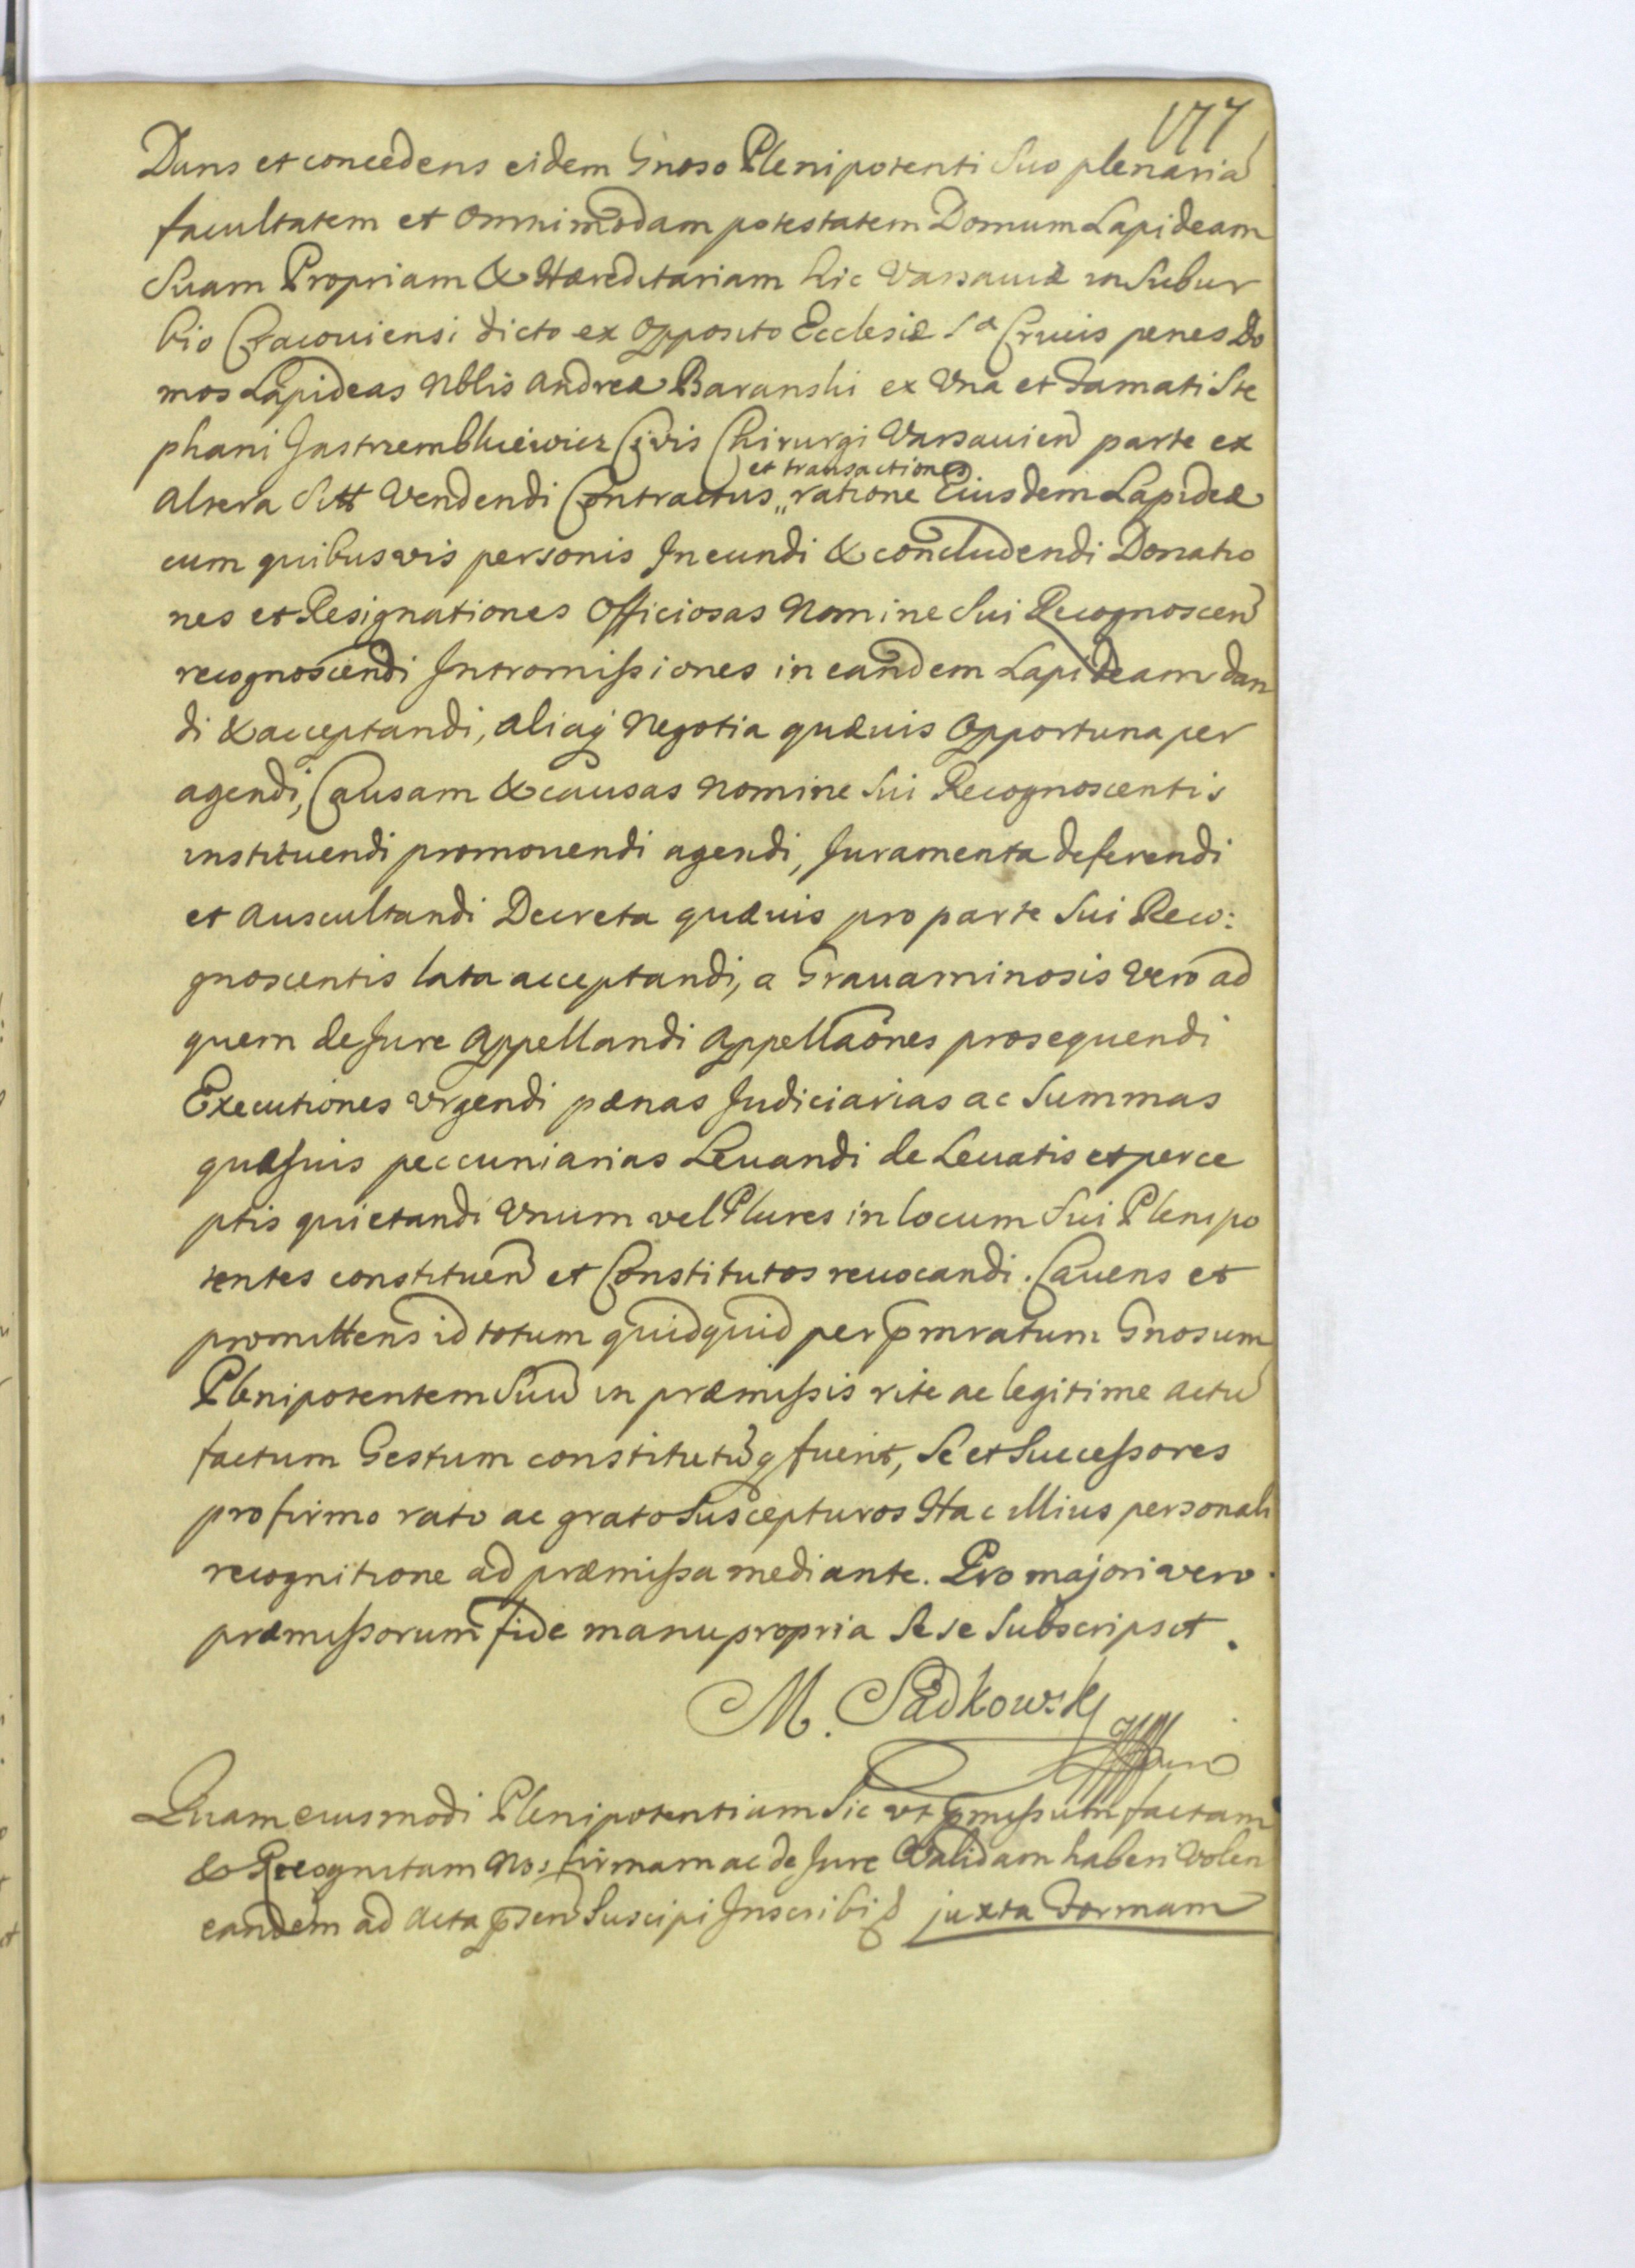 177
Dans et concedens eidem Gnoso Plenipotenti Suo plenariã
facultatem et Omnimodam potestatem Domum Lapideam
Suam Propriam & Hæreditariam hic Varsauiæ in Subur
bio Cracouiensi dicto ex Opposito Ecclesiæ S^æ Crucis penes Do
mos Lapideas Nblis Andreæ Baranski ex Vna et Famati Ste
phani Jastrzembkiewicz Civis Chirurgi Varsauien parte ex
et transactiones
Altera Sitt Vendendi Contractus „ ratione Eiusdem Lapideæ
cum quibusvis personis Ineundi & concludendi Donatio
nes et Resignationes Officiosas Nomine Sui Recognoscen
recognoscendi Intromissiones in eandem Lapideam dan
di & acceptandi, aliaq Negotia quæuis Opportuna per
agendi, Causam & causas Nomine Sui Recognoscentis
instituendi promouendi agendi, Juramenta deferendi
et Auscultandi Decreta quæuis pro parte Sui Reco:
gnoscentis lata acceptandi, a Grauaminosis Vero ad
quem de Jure Appellandi Appellaões prosequendi
Executiones Vrgendi pænas Judiciarias ac Summas
quæsuis peccuniarias Leuandi de Leuatis et perce
ptis quietandi Vnum vel Plures in locum Sui Plenipo
tentes constituen et Constitutos reuocandi. Cauens et
promittens id totum quidquid per pmratum Gnosum
Plenipotentem Suũ in præmissis rite ac legitime actũ
factum Gestum constitutũq fuerit, Se et Successores
pro firmo rato ac grato Suscepturos Hac illius personali
recognitione ad præmissa mediante. Pro majori vero
præmissorum fide manu propria Se se Subscripsit.
M. Sadkowski
Quam eiusmodi Plenipotentiam Sic vt pmissum factam
& Recognitam Nos, firmam ac de Jure Validam haberi Volen
eandem ad Acta psen Suscipi Inscribi juxta Formam